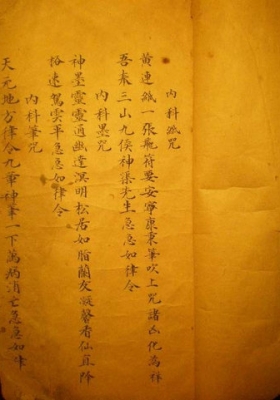 內科紙咒
黃連紙一張為符要安寧康東筆吹上咒諸凶化為祥
吾奉三山九侯神先生急急如律令
內科墨咒
神墨靈靈通幽達溟明松居如脂蘭友凝馨香仙直降
格速駕雲軍急急如律令
內科筆咒
天元地方律令九章神筆一下萬病消亡急急如律